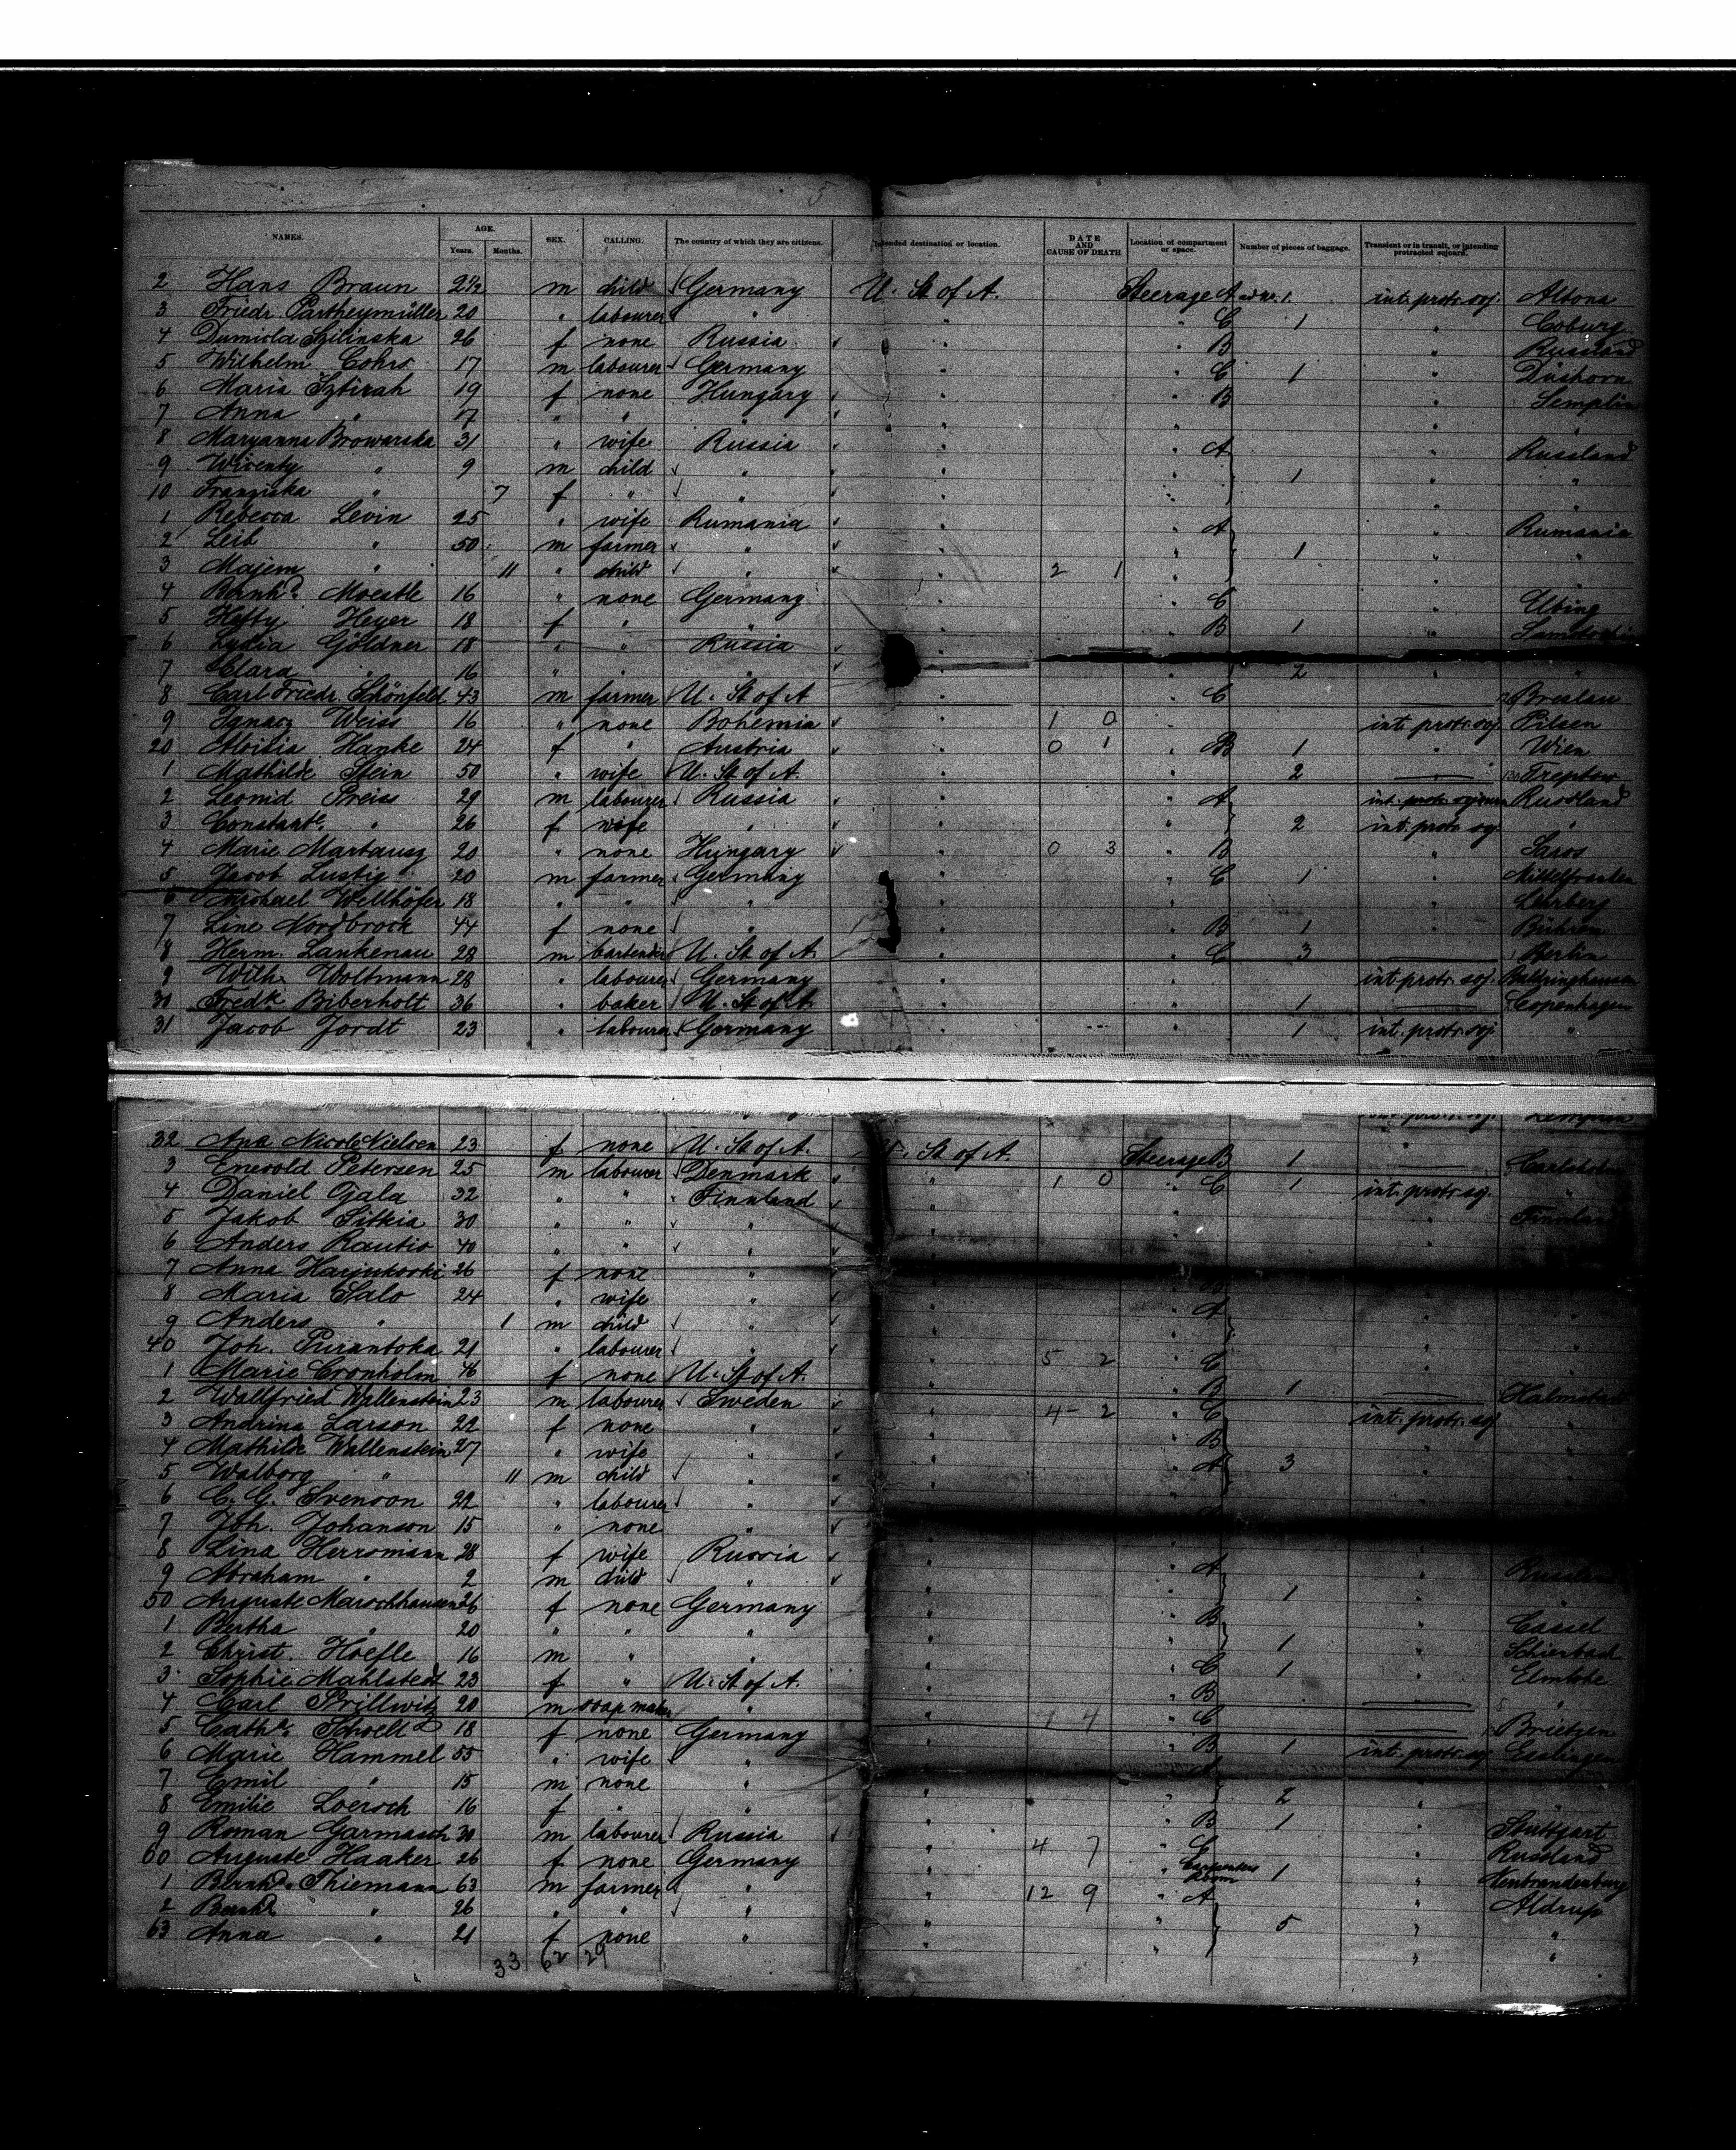 5
NAMES. AGE. Years. Months. SEX. CALLING. The country of which they are citizens. Intended destination or location. DATE AND CAUSE OF DEATH Location of compartment or space. Number of pieces of baggage. Transient or in transit, or intending protracted sojourn.
2 Hans Braun 2 1/2 m child Germany U. St of A. Steerage A int. protr. soj. Altona
3 Friedr. Partheymüller 20 " labourer " " " C 1 " Coburg
4 Szilinska 26 f none Russia " " B " Russland
5 Wilhelm Cohrs 17 m labourer Germany " " C 1 " Düshorn
6 Maria Sztirah 19 f none Hungary " " B " Semplin
7 Anna " 17 " " " " " " "
8 Maryanna Browarska 31 " wife Russia " " A " Russland
9 " 9 m child " " " 1 " "
10 Franziska " 7 f " " " " " "
1 Rebecca Levin 25 " wife Rumania " " A " Rumania
2 Leib " 50 m farmer " " " 1 " "
3 Majem " 11 " child " " 2 1 " " "
4 Bernhd. Moestle 16 " none Germany " " C " Ubing
5 Hetty Heyer 18 f " " " " B 1 "
6 Lydia Göldner 18 " " Russia
7 Clara " 16 " " " " 2 " "
8 Carl Friedr. Schönfeld 43 m farmer U. St of A " " C Breslau
9 Ignacz Weiss 16 " none Bohemia " 1 0 " int. protr. soj. Pilsen
20 Aloisia Hanke 24 f " Austria " 0 1 " B 1 " Wien
1 Mathilde Stein 50 " wife U. St of A. " " 2 Treptow
2 Leonid Preiss 29 m labourer Russia " " A int. protr. sojourn Russland
3 " 26 f wife " " " 2 int. protr. soj. "
4 Marie Martausz 20 " none Hungary " 0 3 " B " Saros
5 Jacob Lustig 20 m farmer Germany " " C 1 " Mittelfranken
6 Michael Wellhöfer 18 " " " " " " Lehrberg
7 Line Nordbrock 44 f none " " " B 1 " Bühren
8 Herm. Lankenau 28 m bartender U. St of A. " " C 3 Berlin
9 Wilh. Woltmann 28 " labourer Germany " " int. protr. soj.
30 Fredk. Biberholt 36 " baker U. St of A. " " 1 Copenhagen
31 Jacob Jordt 23 " labourer Germany " " 1 int. protr. soj. "
32 Ana Nicole Nielsen 23 f none U. St of A. U. St of A. Steerage B 1
3 Enevold Petersen 25 m labourer Denmark " 1 0 " C 1 int. protr. soj.
4 Daniel Gala 32 " " Finnland " " " Finnland
5 Jakob Sitkia 30 " " "
6 Anders Rautio 40 " " "
7 Anna Harjukoski 26 f none " B
8 Maria Salo 24 " wife " " " A " "
9 Anders " 1 m child " " " " "
40 Joh. Purantoka 21 " labourer " " 5 2 " C " "
1 Marie Cronholm 46 f none U. St of A. " " B 1 Halmstad
2 Wallfried Wallenstein 23 m labourer Sweden " 4 2 " C int. protr. soj.
3 Andrina Larson 22 f none " " " B " "
4 Mathilde Wallenstein 27 " wife " " " A 3 " "
5 Walborg " 11 m child " "
6 C. G. Svenson 22 " labourer "
7 Joh. Johanson 15 " none "
8 Lina Herromann 28 f wife Russia " " A " Russland
9 Abraham " 2 m child " " " 1 " "
50 Auguste Marochhausen 26 f none Germany " " B " Cassel
1 Bertha " 20 " " " " " 1 "
2 Christ. Hoefle 16 m " " " " C 1 " Schierbach
3 Sophie Mahlstedt 23 f " U. St of A. " " B Elmlohe
4 Carl Prillwitz 20 m soap maker " " 4 4 " C Brietzen
5 Cathe. Schoell 18 f none Germany " " B 1 int. protr. soj. Esslingen
6 Marie Hammel 55 " wife "
7 Emil " 15 m none " " " 2 "
8 Emilie Loersch 16 f " " " " B 1 " Stuttgart
9 Roman Garmasch 30 m labourer Russia " 4 7 " C " Russland
60 Auguste Haaker 26 f none Germany " " Carpenters Room 1 " Neubrandenburg
1 Bernhd. Thiemann 63 m farmer " " 12 9 " A " Aldrup
2 Bernhd. " 26 " " " " " 5 " "
63 Anna " 21 f none " " " " "
33 62 29